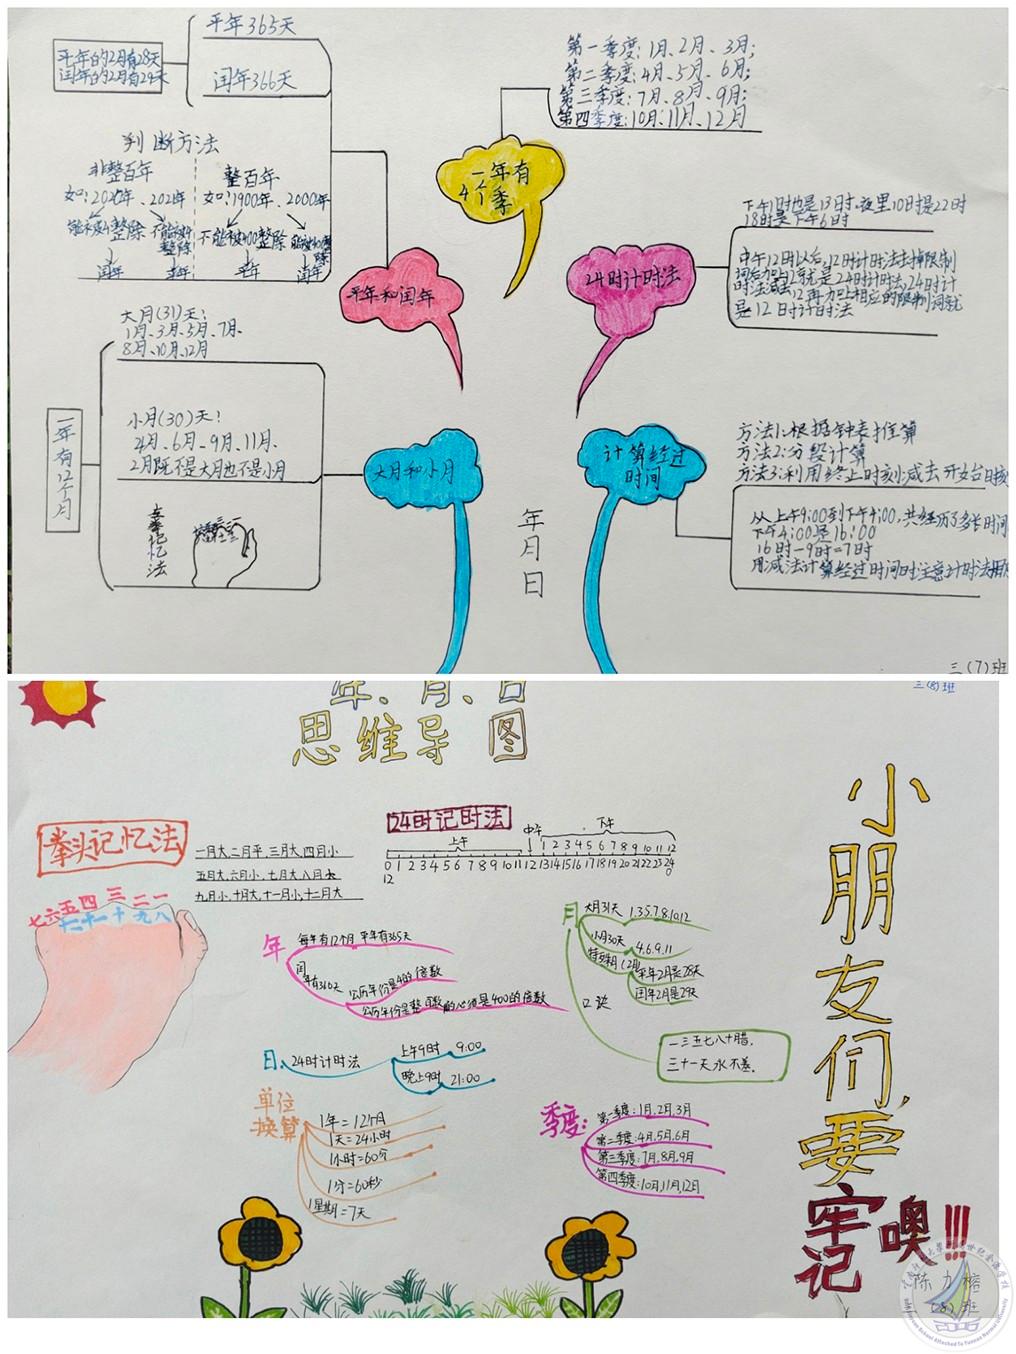 平年365天
闰年366天
平年的2月有28天
闰年的2月有29天
判断方法
非整百年
整百年
如:2020年、2021年
如:1900年、2000年
能被4整除
不能被4整除
不能被400整除
能被400整除
闰年
平年
平年
闰年
平年和闰年
第一季度:1月、2月、3月;
第二季度:4月、5月、6月;
第三季度:7月、8月、9月;
第四季度:10月、11月、12月
一年有
4个季
24时计时法
下午1时也是13时,夜里10时是22时
18时是下午6时
中午12时以后,12时计时法去掉限制
词后加上12就是24时计时法,24时计
时法减去12再加上相应的限制词就
是12时计时法
大月(31)天:
1月、3月、5月、7月、
8月、10月、12月
小月(30)天:
4月、6月、9月、11月、
2月既不是大月也不是小月
一年有12个月
大月和小月
拳记忆法
计算经过
时间
方法1:根据钟表推算
方法2:分段计算
方法3:利用终止时刻减去开始时刻
从上午9:00到下午4:00,共经历了多长时间
下午4:00是16:00
16时-9时=7时
用减法计算经过时间时注意计时法相同
年月日
三(7)班
三(8)班
年、月、日
思维导图
拳头记忆法
一月大、二月平、三月大、四月小
五月大、六月小、七月大、八月大
九月小、十月大、十一月小、十二月大
七六五四三二一
十二十一十九八
24时记时法
上午
中午
下午
1 2 3 4 5 6 7 8 9 10 11 12
0 1 2 3 4 5 6 7 8 9 10 11 12 13 14 15 16 17 18 19 20 21 22 23 24
12
0
年
每年有12个月 平年有365天
闰年有366天
公历年份是4的倍数
公历年份是整百数的必须是400的倍数
月
大月31天 1.3.5.7.8.10.12
小月30天 4.6.9.11
特殊月(2月)
平年2月是28天
闰年2月是29天
口诀
一三五七八十腊,
三十一天永不差.
日
24时计时法
上午9时 9:00
晚上9时 21:00
单位
换算
1年=12个月
1天=24小时
1小时=60分
1分=60秒
1星期=7天
季度:
第一季度:1月,2月,3月
第二季度:4月,5月,6月
第三季度:7月,8月,9月
第四季度:10月,11月,12月
小朋友们,要
牢记噢!!!
(8)班